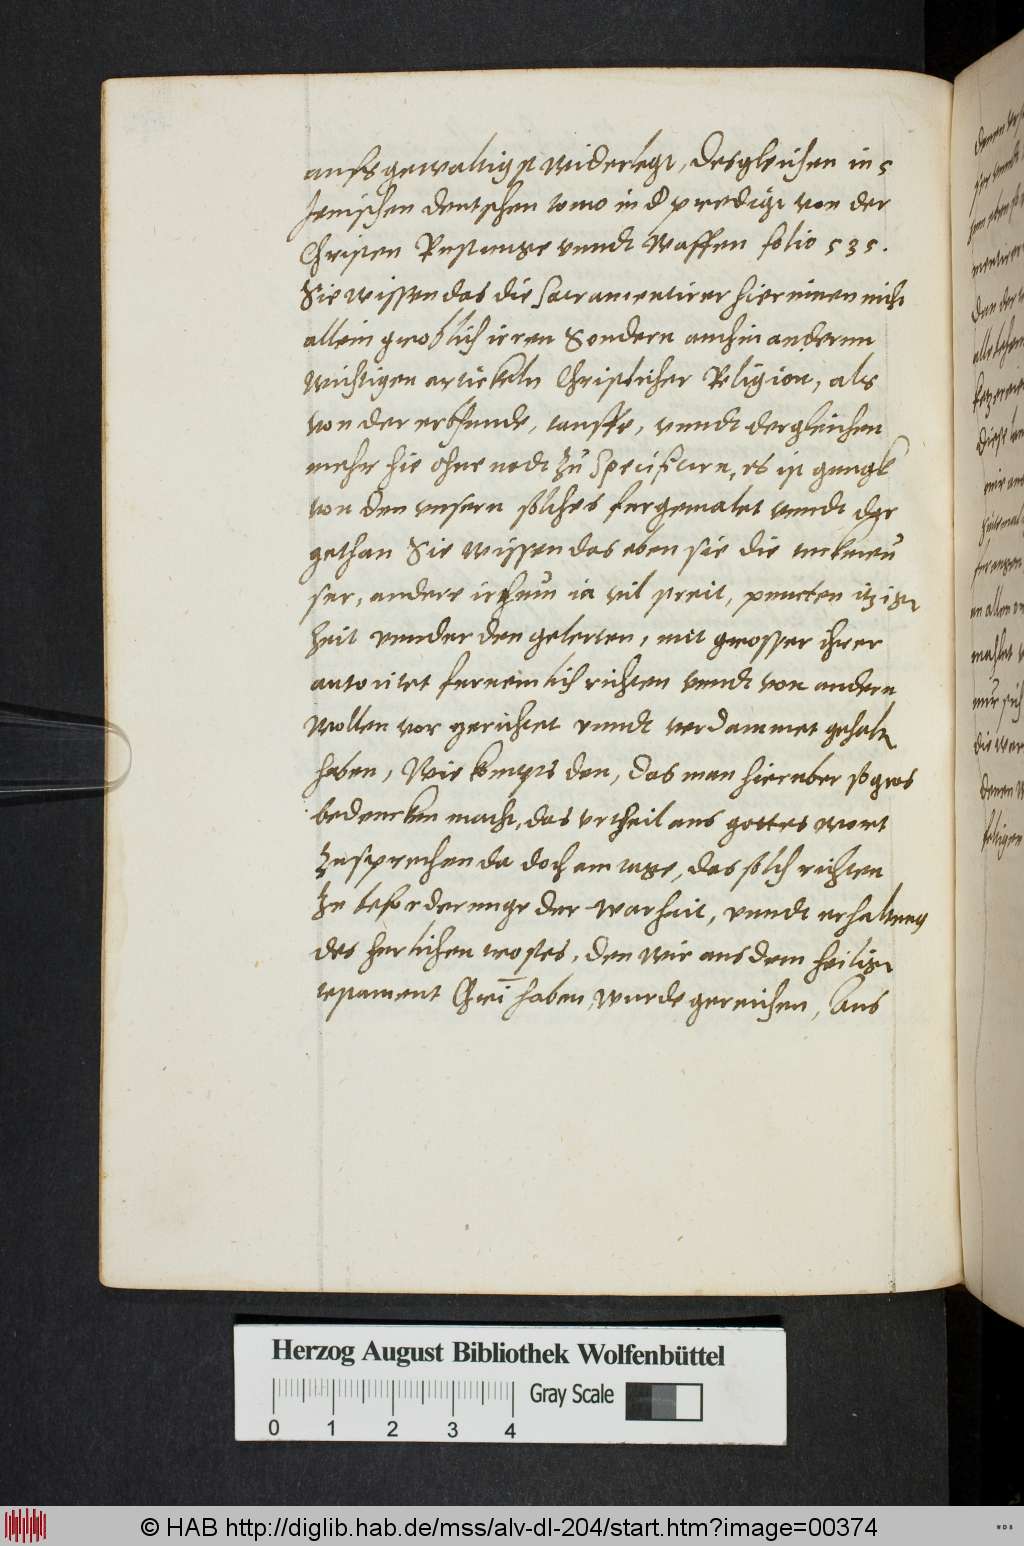 aufs gewaltigst widerlegt, desgleichen in 5
Jenischen deutschen tomo in d predigt von der
Christen Rustunge vnndt Waffen folio 535.
Sie wissen das die Sacramentirer hierinnen nicht
allein groblich irren Sondern auch in andernn
wichtigen artickeln Christlicher Religion, als
von der erbsunde, tauffe, vnndt dergleichen
mehr hie ohne nodt zu specificirn, es ist gnugk
von den vnsern solches furgemalet vnndt dar
gethan Sie wissen das eben sie die
ser, andere irthum in vil streit, puncten itziger
Zeit vnnder den gelerten, mit grosser ihrer
autoritet furnemlich richten vnndt von andern
wollen vor gerichtet vnndt verdammet gehaltn
haben, Wie kompts den, das man hieruber so gros
bedencken macht, das vrtheil aus gottes wort
Zusprechen da doch am tage, das solch richten
Zu beforderunge der warheit, vnndt erhaltung
des herlichen trostes, den wir aus dem heiligen
testament Chri haben, wurde gereichen, Aus
Herzog August Bibliothek Wolfenbüttel
Gray Scale
0 1 2 3 4
© HAB http://diglib.hab.de/mss/alv-dl-204/start.htm?image=00374